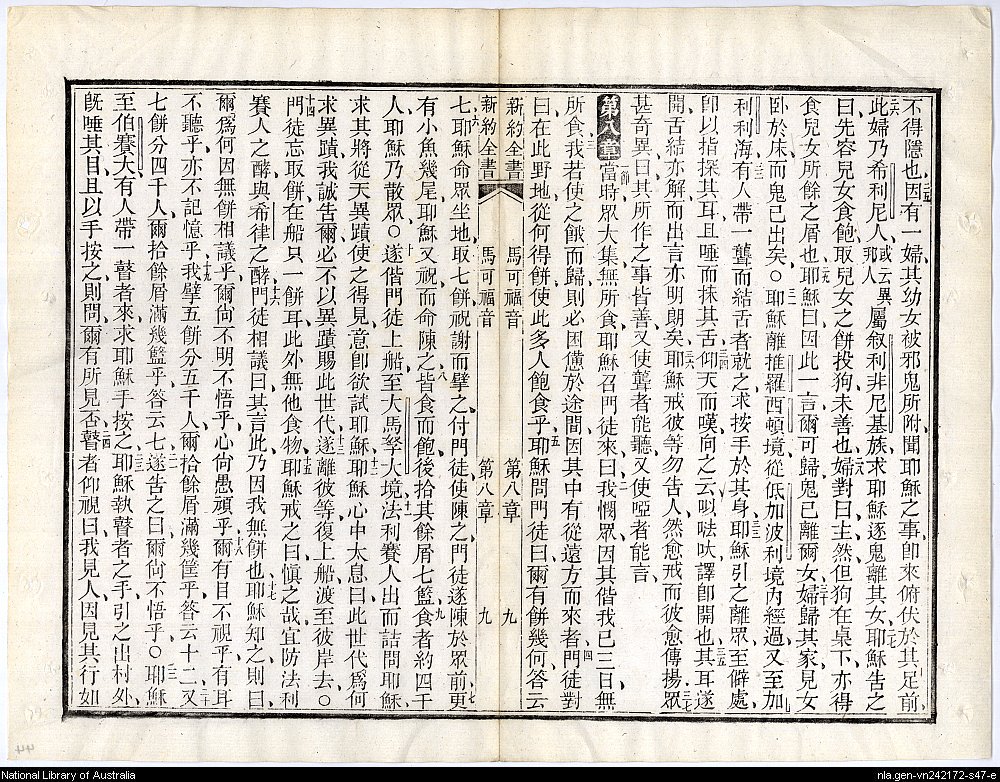 不得隱也二五因有一婦其幼女被邪鬼所附聞耶穌之事卽來俯伏於其足前
二六此婦乃希利尼人或云異邦人屬叙利非尼基族求耶穌逐鬼離其女二七耶穌告之
曰先容兒女食飽取兒女之餅投狗未善也二八婦對曰主然但狗在桌下亦得
食兒女所餘之屑也二九耶穌曰因此一言爾可歸鬼已離爾女三十婦歸其家見女
臥於床而鬼已出矣○三一耶穌離推羅西頓境從低加波利境內經過又至加
利利海三二有人帶一聾而結舌者就之求按手於其身三三耶穌引之離眾至僻處
卽以指探其耳且唾而抹其舌三四仰天而嘆向之云呿吠譯卽開也三五其耳遂
開舌結亦解而出言亦明朗矣三六耶穌戒彼等勿告人然愈戒而彼愈傳揚三七眾
甚奇異曰其所作之事皆善又使聾者能聽又使啞者能言
第八章一節當時眾大集無所食耶穌召門徒來曰二我憫眾因其偕我已三日無
所食三我若使之餓而歸則必困憊於途間因其中有從遠方而來者四門徒對
曰在此野地從何得餅使此多人飽食乎五耶穌問門徒曰爾有餅幾何答云
新約全書 馬可福音 第八章 九
新約全書 馬可福音 第八章 九
七六耶穌命眾坐地取七餅祝謝而擘之付門徒使陳之門徒遂陳於眾前七更
有小魚幾尾耶穌又祝而命陳之八皆食而飽後拾其餘屑七籃九食者約四千
人耶穌乃散眾○十遂偕門徒上船至大馬孥大境十一法利賽人出而詰問耶穌
求其將從天異蹟使之得見意卽欲試耶穌十二耶穌心中太息曰此世代爲何
求異蹟我誠告爾必不以異蹟賜此世代十三遂離彼等復上船渡至彼岸去○
十四門徒忘取餅在船只一餅耳此外無他食物十五耶穌戒之曰愼之哉宜防法利
賽人之酵與希律之酵十六門徒相議曰其言此乃因我無餅也十七耶穌知之則曰
爾爲何因無餅相議乎爾尙不明不悟乎心尙愚頑乎十八爾有目不視乎有耳
不聽乎亦不記憶乎十九我擘五餅分五千人爾拾餘屑滿幾筐乎答云十二二十又
七餅分四千人爾拾餘屑滿幾籃乎答云七二一遂告之曰爾尙不悟乎○二二耶穌
至伯賽大有人帶一瞽者來求耶穌手按之二三耶穌執瞽者之手引之出村外
旣唾其目且以手按之則問爾有所見否二四瞽者仰視曰我見人因見其行如
National Library of Australia
nla.gen-vn242172-s47-e